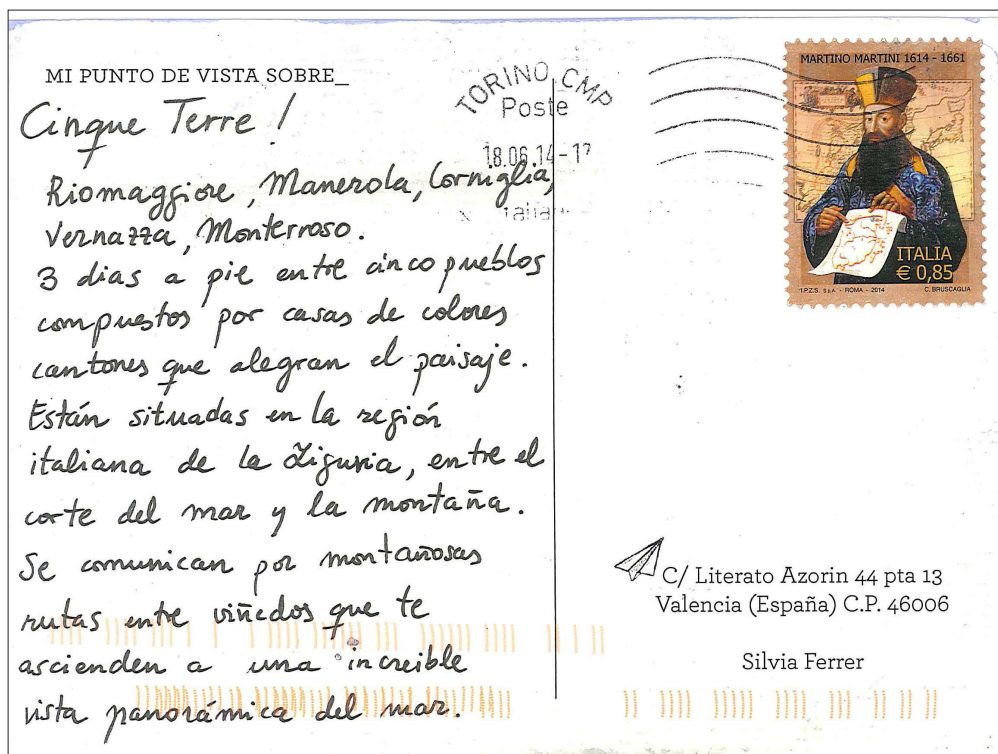 MI PUNTO DE VISTA SOBRE_
Cinque Terre!
Riomaggiore, Manerola, Corniglia,
Vernazza, Monterroso.
3 dias a pie entre cinco pueblos
compuestos por casas de colores
cantones que alegran el paisaje.
Están situadas en la región
italiana de la Liguria, entre el
corte del mar y la montaña.
Se comunican por montañosas
rutas entre viñedos que te
ascienden a una increible
vista panorámica del mar.
TORINO CMP
Poste
18.06.14-1
MARTINO MARTINI 1614 - 1661
ITALIA
€ 0,85
I.P.Z.S. S.p.A. - ROMA - 2014
C. BRUSCAGLIA
C/ Literato Azorin 44 pta 13
Valencia (España) C.P. 46006
Silvia Ferrer